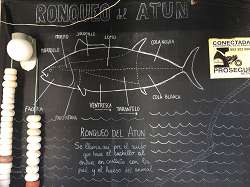 RONQUEO del ATUN
MORRO
LOMO
COLA NEGRA
FACERA
VENTRESCA
TARANTELO
COLA BLANCA
RONQUEO DEL ATUN
Se llama así por el ruido
que hace el cuchillo al
entrar en contacto con los
y el hueso del animal
CONECTADA
PROSEGUR